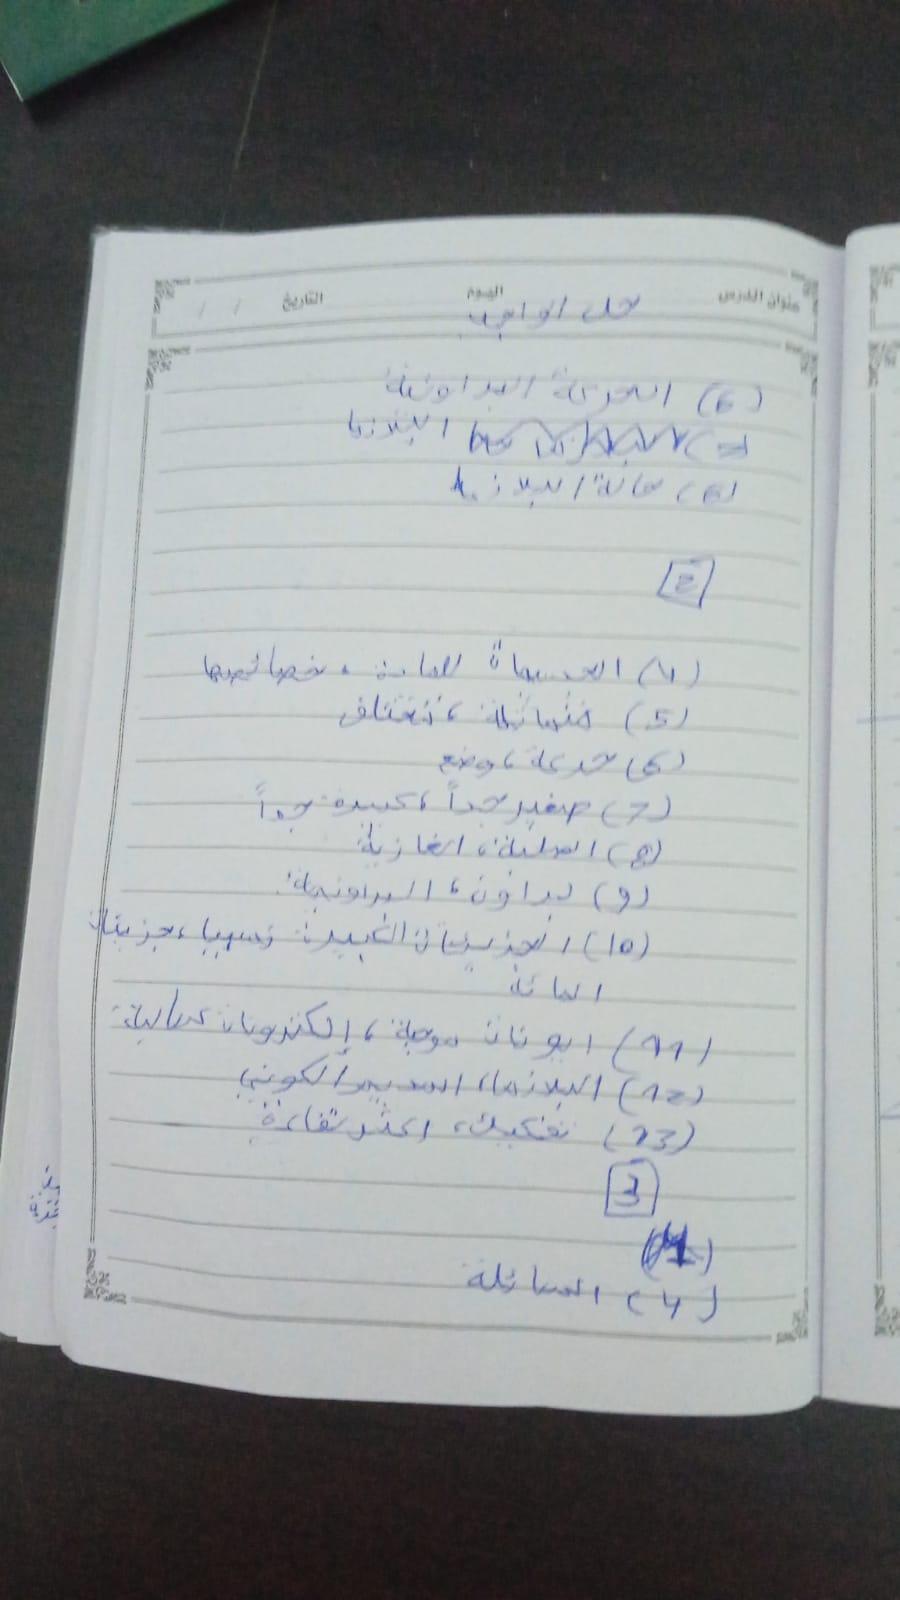 عنوان الدرس حل الواجب اليوم التاريخ / /
(6) الحركة البراونية
(7 البلازما
(8) حالة البلازما
2
(4) الجسيماة للمادة ، خصائصها
(5) متماثلة ، تختلف
(6) حركة ، وضع
(7) صغير جداً ، كبيرة جداً
(8) الصلبة ، الغازية
(9) براون ، البراونية
(10) الجزيئات الكبيرة نسبيا ، جزيئات
المائة
(11) ايونات موجبة ، إلكترونات سالبة
(12) البلازما ، السديم الكوني
(13) تفكيك ، اكثر كفاءة
3
(4) السائلة